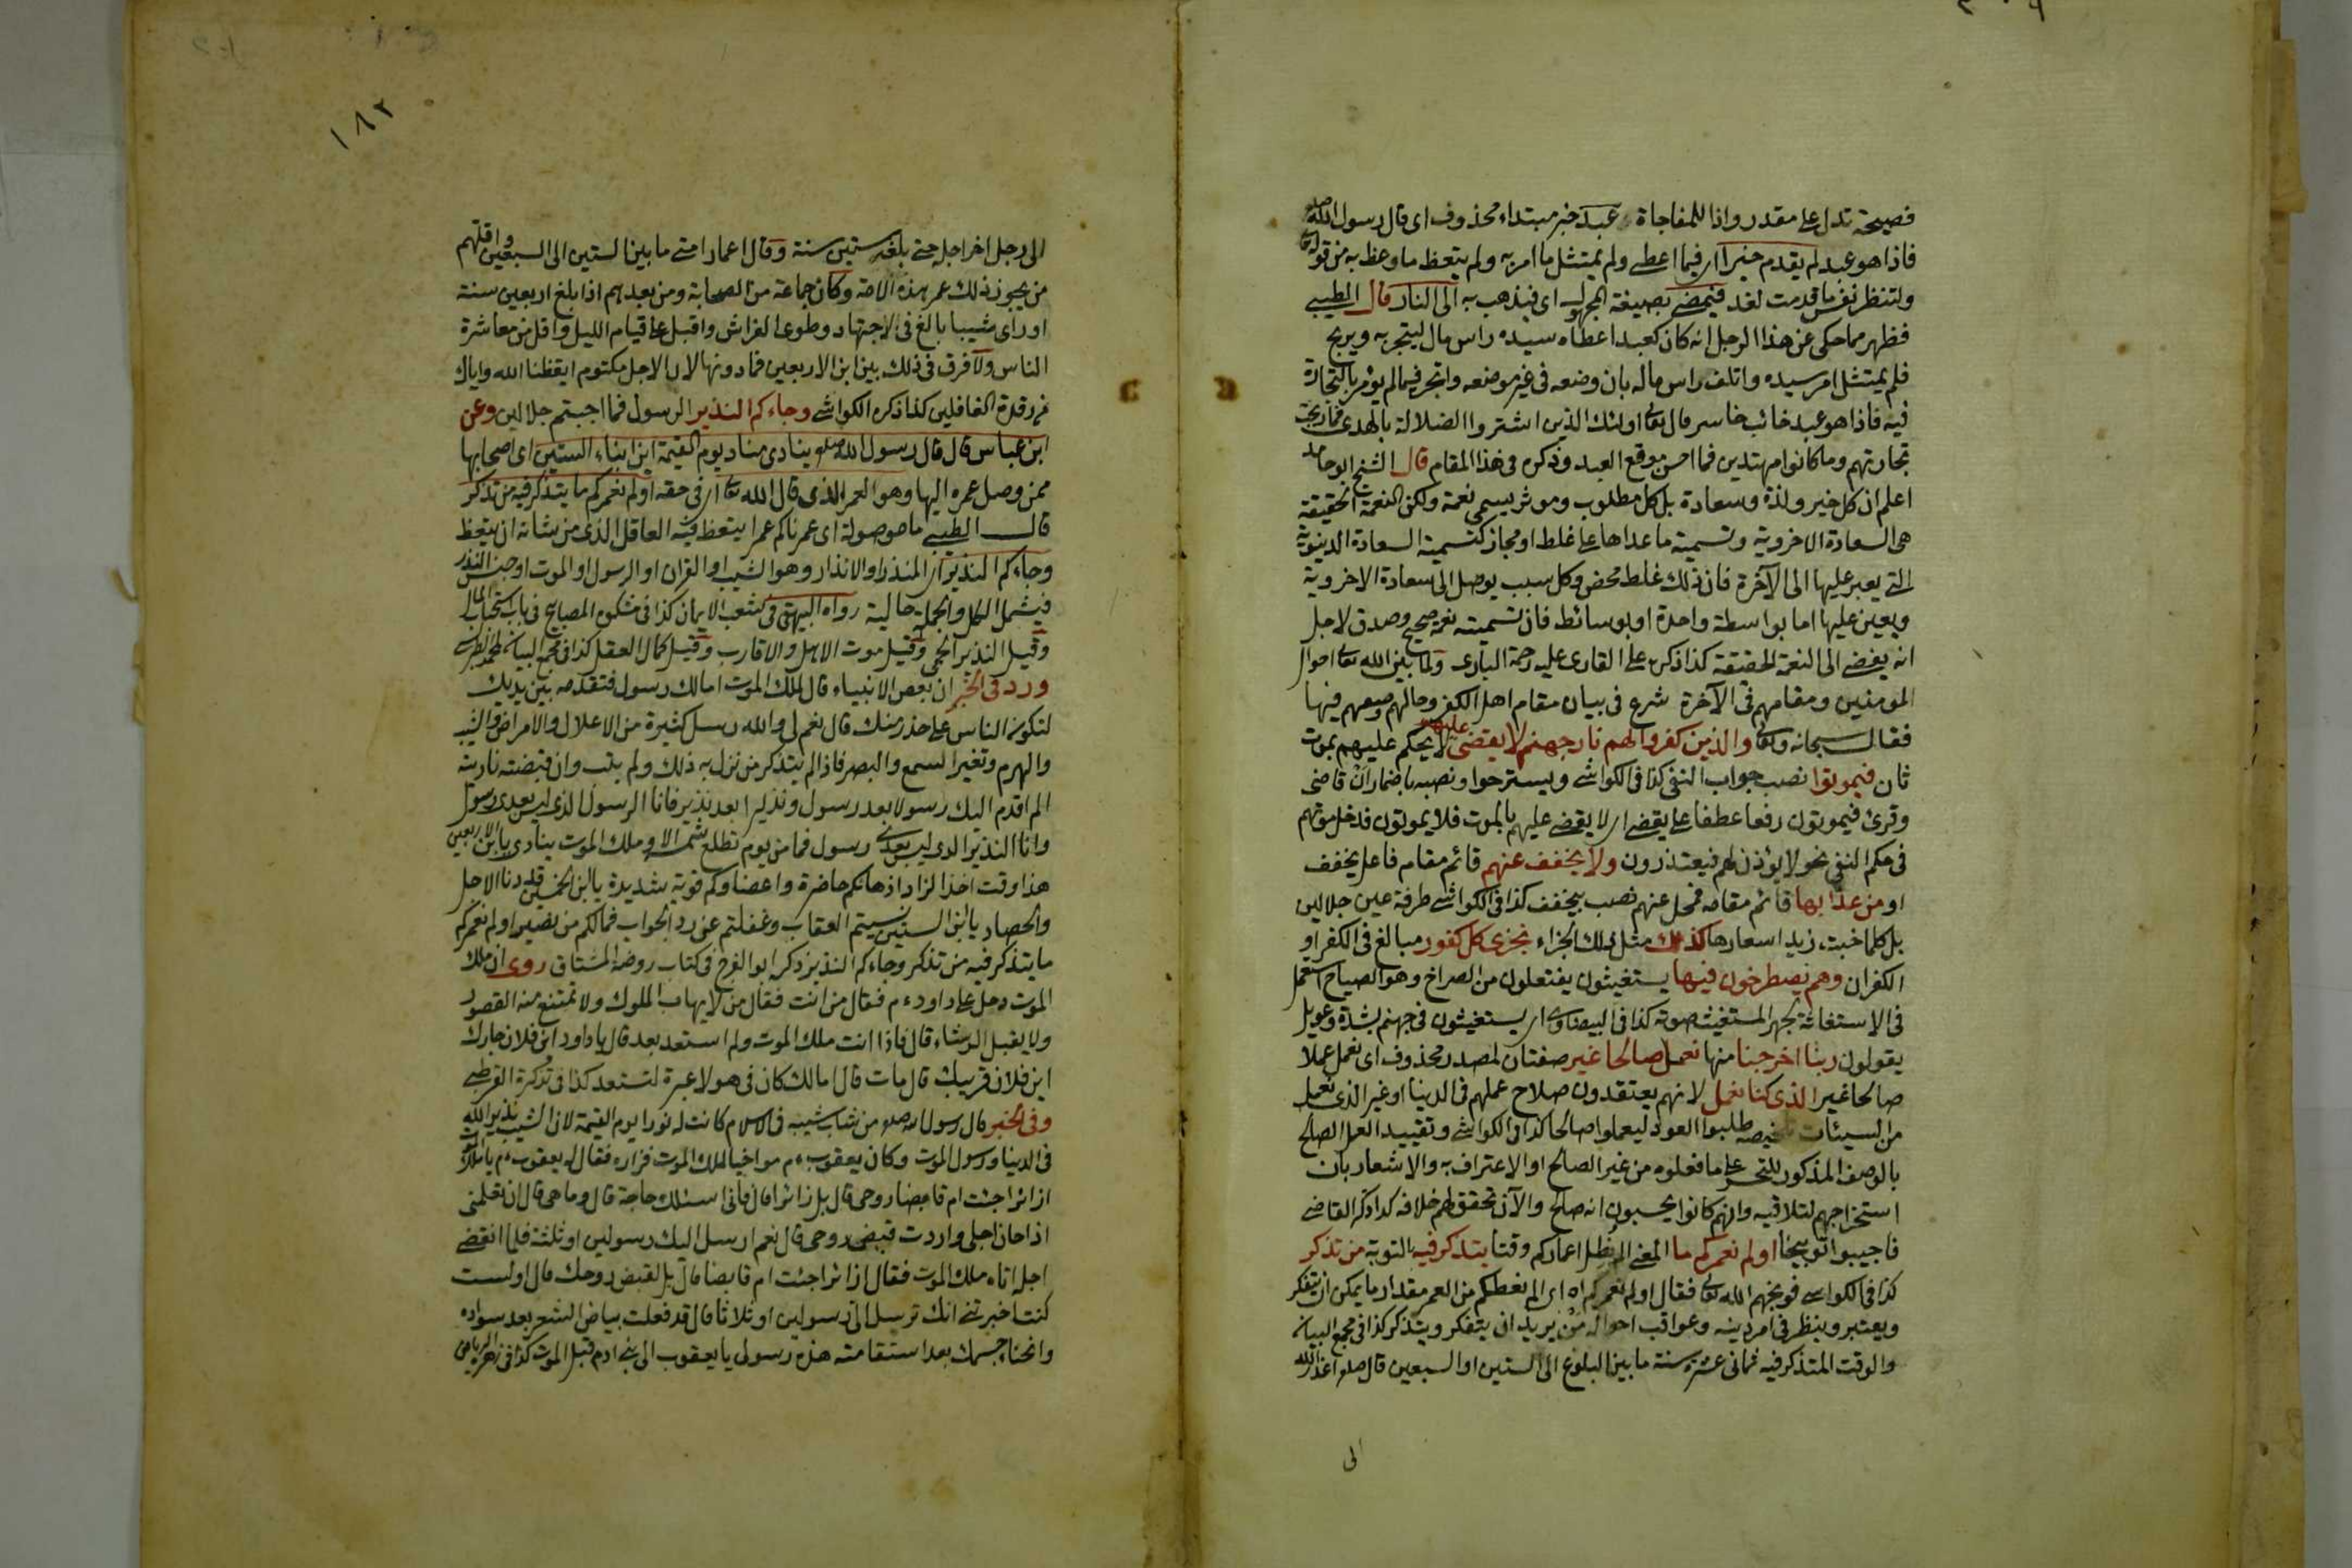 فصيحة تدل على مقدر واذا للمفاجاة عبد خبر مبتداء محذوف اى قال رسول الله صلعم
فاذا هو عبد لم يقدم خيرا اى فيما اعطى ولم يمتثل ما امر به ولم يتعظ ما وعظ به من قوله تعا
ولتنظر نفس ما قدمت لغد فيمضى بصيغة المجهول اى فيذهب به الى النار قال الطيبى
فظهر مما حكى عن هذا الرجل انه كان كعبد اعطاه سيده راس مال ليتجر به ويربح
فلم يمتثل امر سيده واتلف راس ماله بان وضعه فى غير موضعه واتجر فيما لم يؤمر بالتجارة
فيه فاذا هو عبد خائب خاسر قال تعالى اولئك الذين اشتروا الضلالة بالهدى فما ربحت
تجارتهم وما كانوا مهتدين فما احسن موقع العبد وذكره فى هذا المقام قال الشيخ ابو حامد
اعلم ان كل خير ولذة وسعادة بل كل مطلوب وموثر يسمى نعمة ولكن النعمة الحقيقة
هى السعادة الاخروية وتسمية ما عداها غلط او مجاز كتسمية السعادة الدنيوية
التى يعبر عليها الى الآخرة فان ذلك غلط محض وكل سبب يوصل الى سعادة الاخروية
ويعين عليها اما بواسطة واحدة او بوسائط فان تسميته نعمة صحيح وصدق لاجل
انه يفضى الى النعمة الحقيقة كذا ذكره على القارى عليه رحمة البارى ولما بين الله تعا احوال
المومنين ومقامهم فى الآخرة شرع فى بيان مقام اهل الكفر وحالهم وصعهم فيها
فقال سبحانه وتعا والذين كفروا لهم نار جهنم لا يقضى عليهم لا يحكم عليهم بموت
ثان فيموتوا نصب جواب النفى كذا فى الكواشى ويستريحوا ونصبه باضمار ان قاضى
وقرئ فيموتون رفعا عطفا على يقضى اى لا يقضى عليهم بالموت فلا يموتون فدخل موتهم
فى حكم النفى نحو لا يؤذن لهم فيعتذرون ولا يخفف عنهم قائم مقام فاعل يخفف
او من عذابها قائم مقامه فمحل عنهم نصب بيخفف كذا فى الكواشى طرفة عين جلالين
بل كلما خبت زيد اسعارها كذلك مثل ذلك الجزاء نجزى كل كفور مبالغ فى الكفر او
الكفران وهم يصطرخون فيها يستغيثون يفتعلون من الصراخ وهو الصياح استعمل
فى الاستغاثة لجهر المستغيث صوته كذا فى البيضاوى اى يستغيثون فى جهنم بشدة وعويل
يقولون ربنا اخرجنا منها نعمل صالحا غير صفتان لمصدر محذوف اى نعمل عملا
صالحا غير الذى كنا نعمل لانهم يعتقدون صلاح عملهم فى الدنيا او غير الذى نعمل
من السيئات تلخيصه طلبوا العود ليعملوا صالحا كذا فى الكواشى وتقييد العمل الصالح
بالوصف المذكور للتحسر على ما فعلوه من غير الصالح او الاعتراف به والاشعار بان
استخراجهم لتلافيه وانهم كانوا يحسبون انه صالح والآن تحقق لهم خلافه كذا ذكر القاضى
فاجيبوا توبيخا اولم نعمركم ما المعنى الم نطل اعماركم وقتا يتذكر فيه بالتوبة من تذكر
كذا فى الكواشى فوبخهم الله تعالى فقال اولم نعمركم اه اى الم نعطكم من العمر مقدار ما يمكن ان يتفكر
ويعتبر وينظر فى امر دينه وعواقب احواله من يريد ان يتفكر ويتذكر كذا فى مجمع البيان
والوقت المتذكر فيه ثمانى عشرة سنة ما بين البلوغ الى الستين او السبعين قال صلعم اعذر الله
الى
١٨٢
الى رجل اخر اجله حتى بلغه ستين سنة وقال اعمار امتى ما بين الستين الى السبعين واقلهم
من يجوز ذلك عمر هذه الامة وكان جماعة من الصحابة ومن بعدهم اذا بلغ اربعين سنة
او راى شيبا بالغ فى الاجتهاد وطوى الفراش واقبل على قيام الليل واقل من معاشرة
الناس ولا فرق فى ذلك بين ابن الاربعين فما دونها لان الاجل مكتوم ايقظنا الله واياك
من رقدة الغافلين كذا ذكره الكواشى وجاءكم النذير الرسول فما اجبتم جلالين وعن
ابن عباس قال قال رسول الله صلعم ينادى مناد يوم القيمة اين ابناء الستين اى اصحابها
ممن وصل عمره اليها وهو العمر الذى قال الله تعا اى فى حقه اولم نعمركم ما يتذكر فيه من تذكر
قال الطيبى ما موصولة اى عمرناكم عمرا يتعظ فيه العاقل الذى من شانه ان يتعظ
وجاءكم النذير اى المنذر او الانذار وهو الشيب او القران او الرسول او الموت او جنس النذر
فيشمل الكل والجملة حالية رواه البيهقى فى شعب الايمان كذا فى مشكوة المصابيح فى باب استحباب المال
وقيل النذير الحمى وقيل موت الاهل والاقارب وقيل كمال العقل كذا فى مجمع البيان
ورد فى الخبر ان بعض الانبياء قال لملك الموت امالك رسول فتقدمه بين يديك
لتكون الناس على حذر منك قال نعم لى والله رسل كثيرة من الاعلال والامراض والشيب
والهرم وتغير السمع والبصر فاذا لم يتذكر من نزل به ذلك ولم يتب وان قبضته ناديته
الم اقدم اليك رسولا بعد رسول ونذيرا بعد نذير فانا الرسول الذى ليس بعدى رسول
وانا النذير الذى ليس بعدى رسول فما من يوم تطلع شمسه الا وملك الموت ينادى يا ابن الاربعين
هذا وقت اخذ الزاد اذهانكم حاضرة واعضاوكم قوية شديدة يا ابن الخمسين قد دنا الاجل
والحصاد يا ابن الستين نسيتم العقاب وغفلتم عن رد الجواب فمالكم من نصير اولم نعمركم
ما يتذكر فيه من تذكر وجاءكم النذير ذكره ابو الفرج فى كتاب روضة المشتاق روى ان ملك
الموت دخل على داود ءم فقال من انت فقال من لا يهاب الملوك ولا تمتنع منه القصور
ولا يقبل الرشاء قال فاذا انت ملك الموت ولم استعد بعد قال يا داود اين فلان جارك
اين فلان قريبك قال مات قال امالك كان فى هولا عبرة لتستعد كذا فى تذكرة القرطبى
وفى الخبر قال رسول الله صلعم من شاب شيبة فى الاسلام كانت له نورا يوم القيمة لان الشيب نذير الله
فى الدنيا ورسول الموت وكان يعقوب ءم مواخيا لملك الموت فزاره فقال له يعقوب ءم يا ملك الموت
ازائرا جئت ام قابضا روحى قال بل زائرا قال فانى اسئلك حاجة قال وما هى قال ان تعلمنى
اذا حان اجلى واردت قبض روحى قال نعم ارسل اليك رسولين او ثلثة فلما انقضى
اجله اتاه ملك الموت فقال ازائرا جئت ام قابضا قال بل لقبض روحك قال اولست
كنت اخبرتنى انك ترسل الى رسولين او ثلاثا قال قد فعلت بياض الشعر بعد سواده
وانحناء جسمك بعد استقامته هذه رسولى يا يعقوب الى بنى ادم قبل الموت كذا فى زهرة الرياض